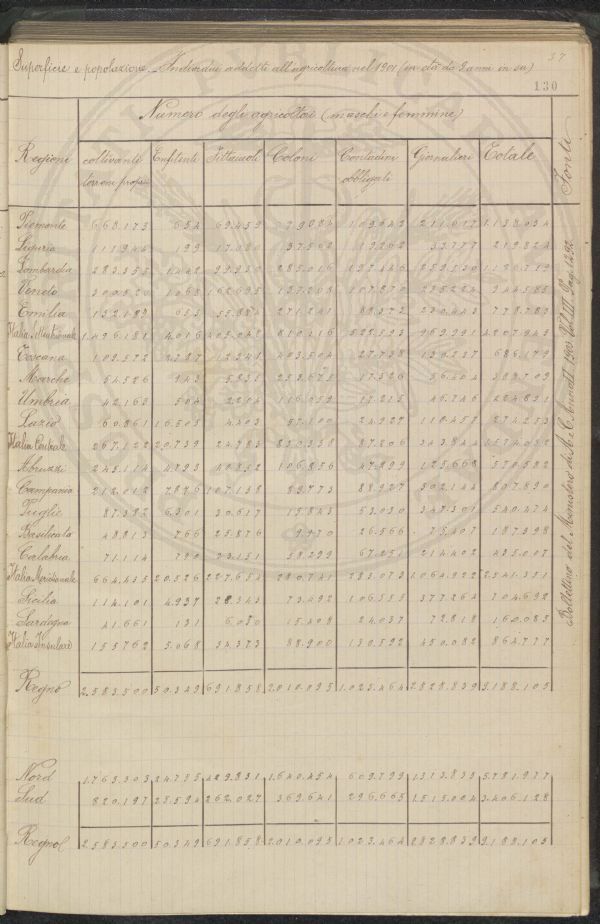 37
Superficie e popolazione - Individui addetti all'agricoltura nel 1901 (in età da 9 anni in su)
130
Numero degli agricoltori (maschi e femmine)
Regioni coltivanti terreni propri Enfiteuti Fittaiuoli Coloni Contadini obbligati Giornalieri Totale
Piemonte 668.173 654 69.459
Liguria 199 219.824
Lombardia 283.355 285.016
Veneto 1.068 162.695 107.870 944.585
Emilia 132.189 655 55.884 271.241
Italia Settentrionale 1.496.181 4.016 405.048 810.216 522.593 969.991 4.207.945
Toscana 109.572 403.504 27.738 130.237 686.179
Marche 54.526 943 253.675 17.526 56.404
Umbria 42.163 504 2204 116.059 17.215 46.746 224.891
Lazio 60.861 16.505 4403 57.100 24.927 110.457 274.253
Italia Centrale 267.122 20.739 24.783 830.338 87.206 343.844 1.574.032
Abruzzi 245.114 4.793 40.852 106.856 47.299 125.668 570.582
Campania 212.012 7.876 107.138 89.773 88.927 302.144 807.890
Puglie 87.382 6.301 30.617 15.843 53.030 347.301 540.474
Basilicata 48.813 766 25.876 9.970 26.566 75.407 187.398
Calabria 71.114 790 23.151 58.299 67.251 214.402 435.007
Italia Meridionale 664.435 20.526 227.654 280.741 283.073 1.064.922 2.541.351
Sicilia 114.101 4.937 28.343 73.492 106.555 377.264 704.692
Sardegna 41.661 131 6.030 15.408 24.037 72.818 160.085
Italia Insulare 155.762 5.068 34.373 88.900 130.592 450.082 864.777
Regno 2.583.500 50.349 691.858 2.010.095 1.023.464 2.828.839 9.188.105
Nord 1.763.303 24.755 429.831 1.640.454 609.799 1.313.835 5.781.977
Sud 820.197 25.594 262.027 369.641 296.665 1.515.004 3.406.128
Regno 2.583.500 50.349 691.858 2.010.095 1.023.464 2.828.839 9.188.105
Fonti
Bollettino del Ministero di A. I. e C.